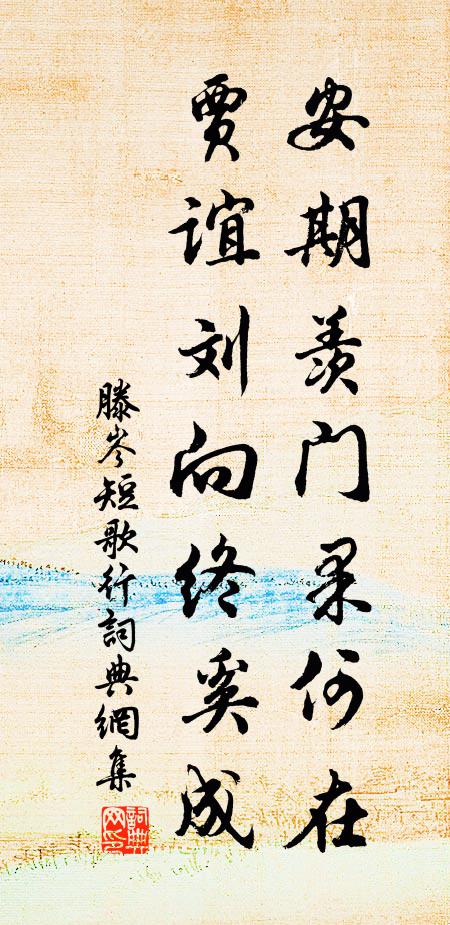 安期羡门果何在
贾谊刘向终奚成
滕岑短歌行詞典網集
詞典网印